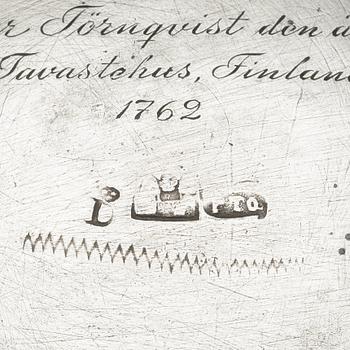 r Törnqvist den ä
Tavastehus, Finlan
1762
L